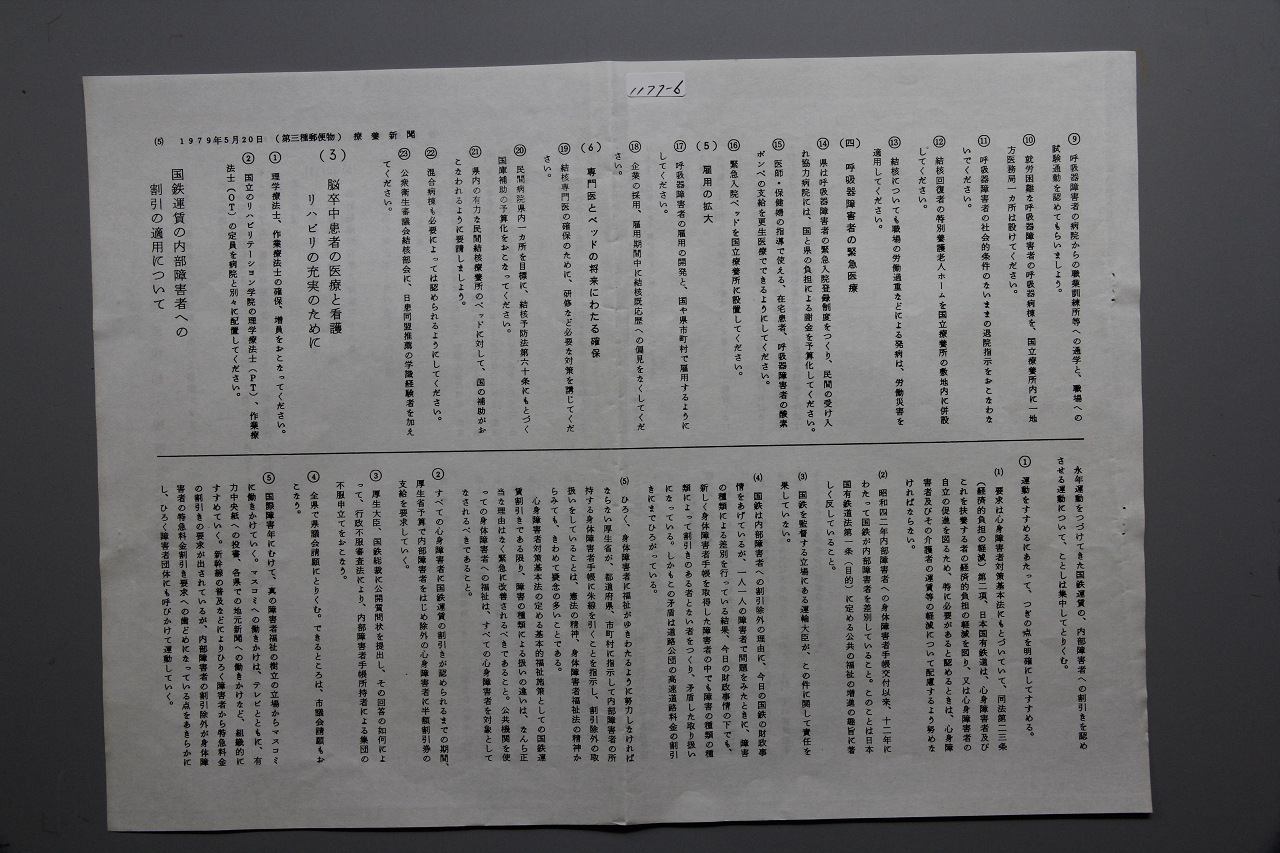 1177-6
(5)　1979年5月20日　（第三種郵便物）　療養新聞
⑨　呼吸器障害者の病院からの職業訓練所等への通学と、職場への
試験通勤を認めてもらいましょう。
⑩　就労困難な呼吸器障害者の呼吸器病棟を、国立療養所内に一地
方医務局一カ所は設けてください。
⑪　呼吸器障害者の社会的条件のないままの退院指示をおこなわな
いでください。
⑫　結核回復者の特別養護老人ホームを国立療養所の敷地内に併設
してください。
⑬　結核についても職場の労働過重などによる発病は、労働災害を
適用してください。
(四)　呼吸器障害者の緊急医療
⑭　県は呼吸器障害者の緊急入院登録制度をつくり、民間の受け入
れ協力病院には、国と県の負担による謝金を予算化してください。
⑮　医師・保健婦の指導で使える、在宅患者、呼吸器障害者の酸素
ボンベの支給を更生医療でできるようにしてください。
⑯　緊急入院ベッドを国立療養所に設置してください。
(5)　雇用の拡大
⑰　呼吸器障害者の雇用の開発と、国や県市町村で雇用するように
してください。
⑱　企業の採用、雇用期間中に結核既応歴への偏見をなくしてくだ
さい。
(6)　専門医とベッドの将来にわたる確保
⑲　結核専門医の確保のために、研修など必要な対策を講じてくだ
さい。
⑳　民間病院県内一カ所を目標に、結核予防法第六十条にもとづく
国庫補助の予算化をおこなってください。
㉑　県内の有力な民間結核療養所のベッドに対して、国の補助がお
こなわれるように要請しましょう。
㉒　混合病棟も必要によっては認められるようにしてください。
㉓　公衆衛生審議会結核部会に、日患同盟推薦の学識経験者を加え
てください。
(3)　脳卒中患者の医療と看護
リハビリの充実のために
①　理学療法士、作業療法士の確保、増員をおこなってください。
②　国立のリハビリテーション学院の理学療法士（PT）、作業療
法士（OT）の定員を病院と別々に配置してください。
国鉄運賃の内部障害者への
割引の適用について
永年運動をつづけてきた国鉄運賃の、内部障害者への割引きを認め
させる運動について、ことしは集中してとりくむ。
①　運動をすすめるにあたって、つぎの点を明確にしてすすめる。
(1)　要求は心身障害者対策基本法にもとづいていて、同法第二三条
（経済的負担の軽減）第二項、日本国有鉄道は、心身障害者及び
これを扶養する者の経済的負担の軽減を図り、又は心身障害者の
自立の促進を図るため、特に必要があると認めるときは、心身障
害者及びその介護者の運賃等の軽減について配慮するよう努めな
ければならない。
(2)　昭和四二年内部障害者への身体障害者手帳交付以来、十二年に
わたって国鉄が内部障害者を差別していること。このことは日本
国有鉄道法第一条（目的）に定める公共の福祉の増進の趣旨に著
しく反していること。
(3)　国鉄を監督する立場にある運輸大臣が、この件に関して責任を
果していない。
(4)　国鉄は内部障害者への割引除外の理由に、今日の国鉄の財政事
情をあげているが、一人一人の障害者で問題をみたときに、障害
の種類による差別を行っている結果、今日の財政事情の下でも、
新しく身体障害者手帳を取得した障害者の中でも障害の種類の種
類によって割引きのある者とない者をつくり、矛盾した取り扱い
になっている。しかもこの矛盾は道路公団の高速道路料金の割引
きにまでひろがっている。
(5)　ひろく、身体障害者に福祉がゆきわたるように努力しなければ
ならない厚生省が、都道府県、市町村に指示して内部障害者の所
持する身体障害者手帳に朱線を引くことを指示し、割引除外の取
扱いをしていることは、憲法の精神、身体障害者福祉法の精神か
らみても、きわめて疑念の多いことである。
心身障害者対策基本法の定める基本的福祉施策としての国鉄運
賃割引きである限り、障害の種類による扱いの違いは、なんら正
当な理由はなく緊急に改善されるべきであること。公共機関を使
っての身体障害者への福祉は、すべての心身障害者を対象として
なされるべきであること。
②　すべての心身障害者に国鉄運賃の割引きが認められるまでの期間、
厚生省予算で内部障害者をはじめ除外の心身障害者に半額割引券の
支給を要求していく。
③　厚生大臣、国鉄総裁に公開質問状を提出し、その回答の如何によ
って、行政不服審査法により、内部障害者手帳所持者による集団の
不服申立てをおこなう。
④　全県で県議会請願にとりくむ。できるところは、市議会請願もお
こなう。
⑤　国際障害年にむけて、真の障害者福祉の樹立の立場からマスコミ
に働きかけていく。マスコミへの働きかけは、テレビとともに、有
力中央紙への投書、各県での地元新聞への働きかけなど、組織的に
すすめていく。新幹線の普及などによりひろく障害者から特急料金
の割引きの要求が出されているが、内部障害者の割引除外が身体障
害者の特急料金割引き要求への歯どめになっている点をあきらかに
し、ひろく障害者団体にも呼びかけて運動していく。